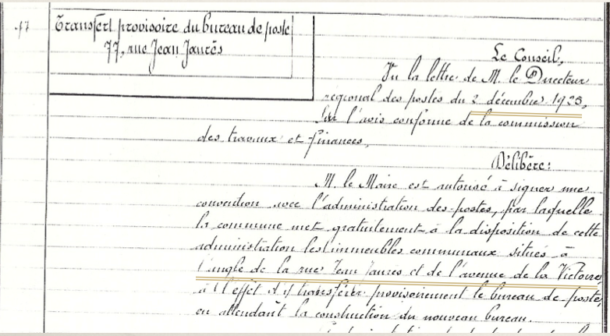 57
Transfert provisoire du bureau de poste
77, rue Jean Jaurès
Le Conseil,
Vu la lettre de M. le Directeur
régional des postes du 2 décembre 1923,
Sur l'avis conforme de la commission
des travaux et finances,
Délibère:
M. le Maire est autorisé à signer une
convention avec l'administration des postes, par laquelle
la commune met gratuitement à la disposition de cette
administration les immeubles communaux situés à
l'angle de la rue Jean Jaurès et de l'avenue de la Victoire
à l'effet d'y transférer provisoirement le bureau de poste
en attendant la construction du nouveau bureau.